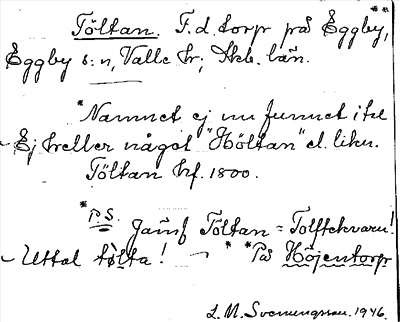 Töltan. F.d. torp på Eggby,
Eggby s:n, Valle hr; Skb. län.
*Namnet ej nu funnet i
- Ej heller något "Höltan" el. likn.
Töltan hf. 1800.
*P.S. Jämf Töltan = Tolftekvarn!
- Uttal tölta! - ** På Höjentorp
L. M. Svenungsson. 1946.